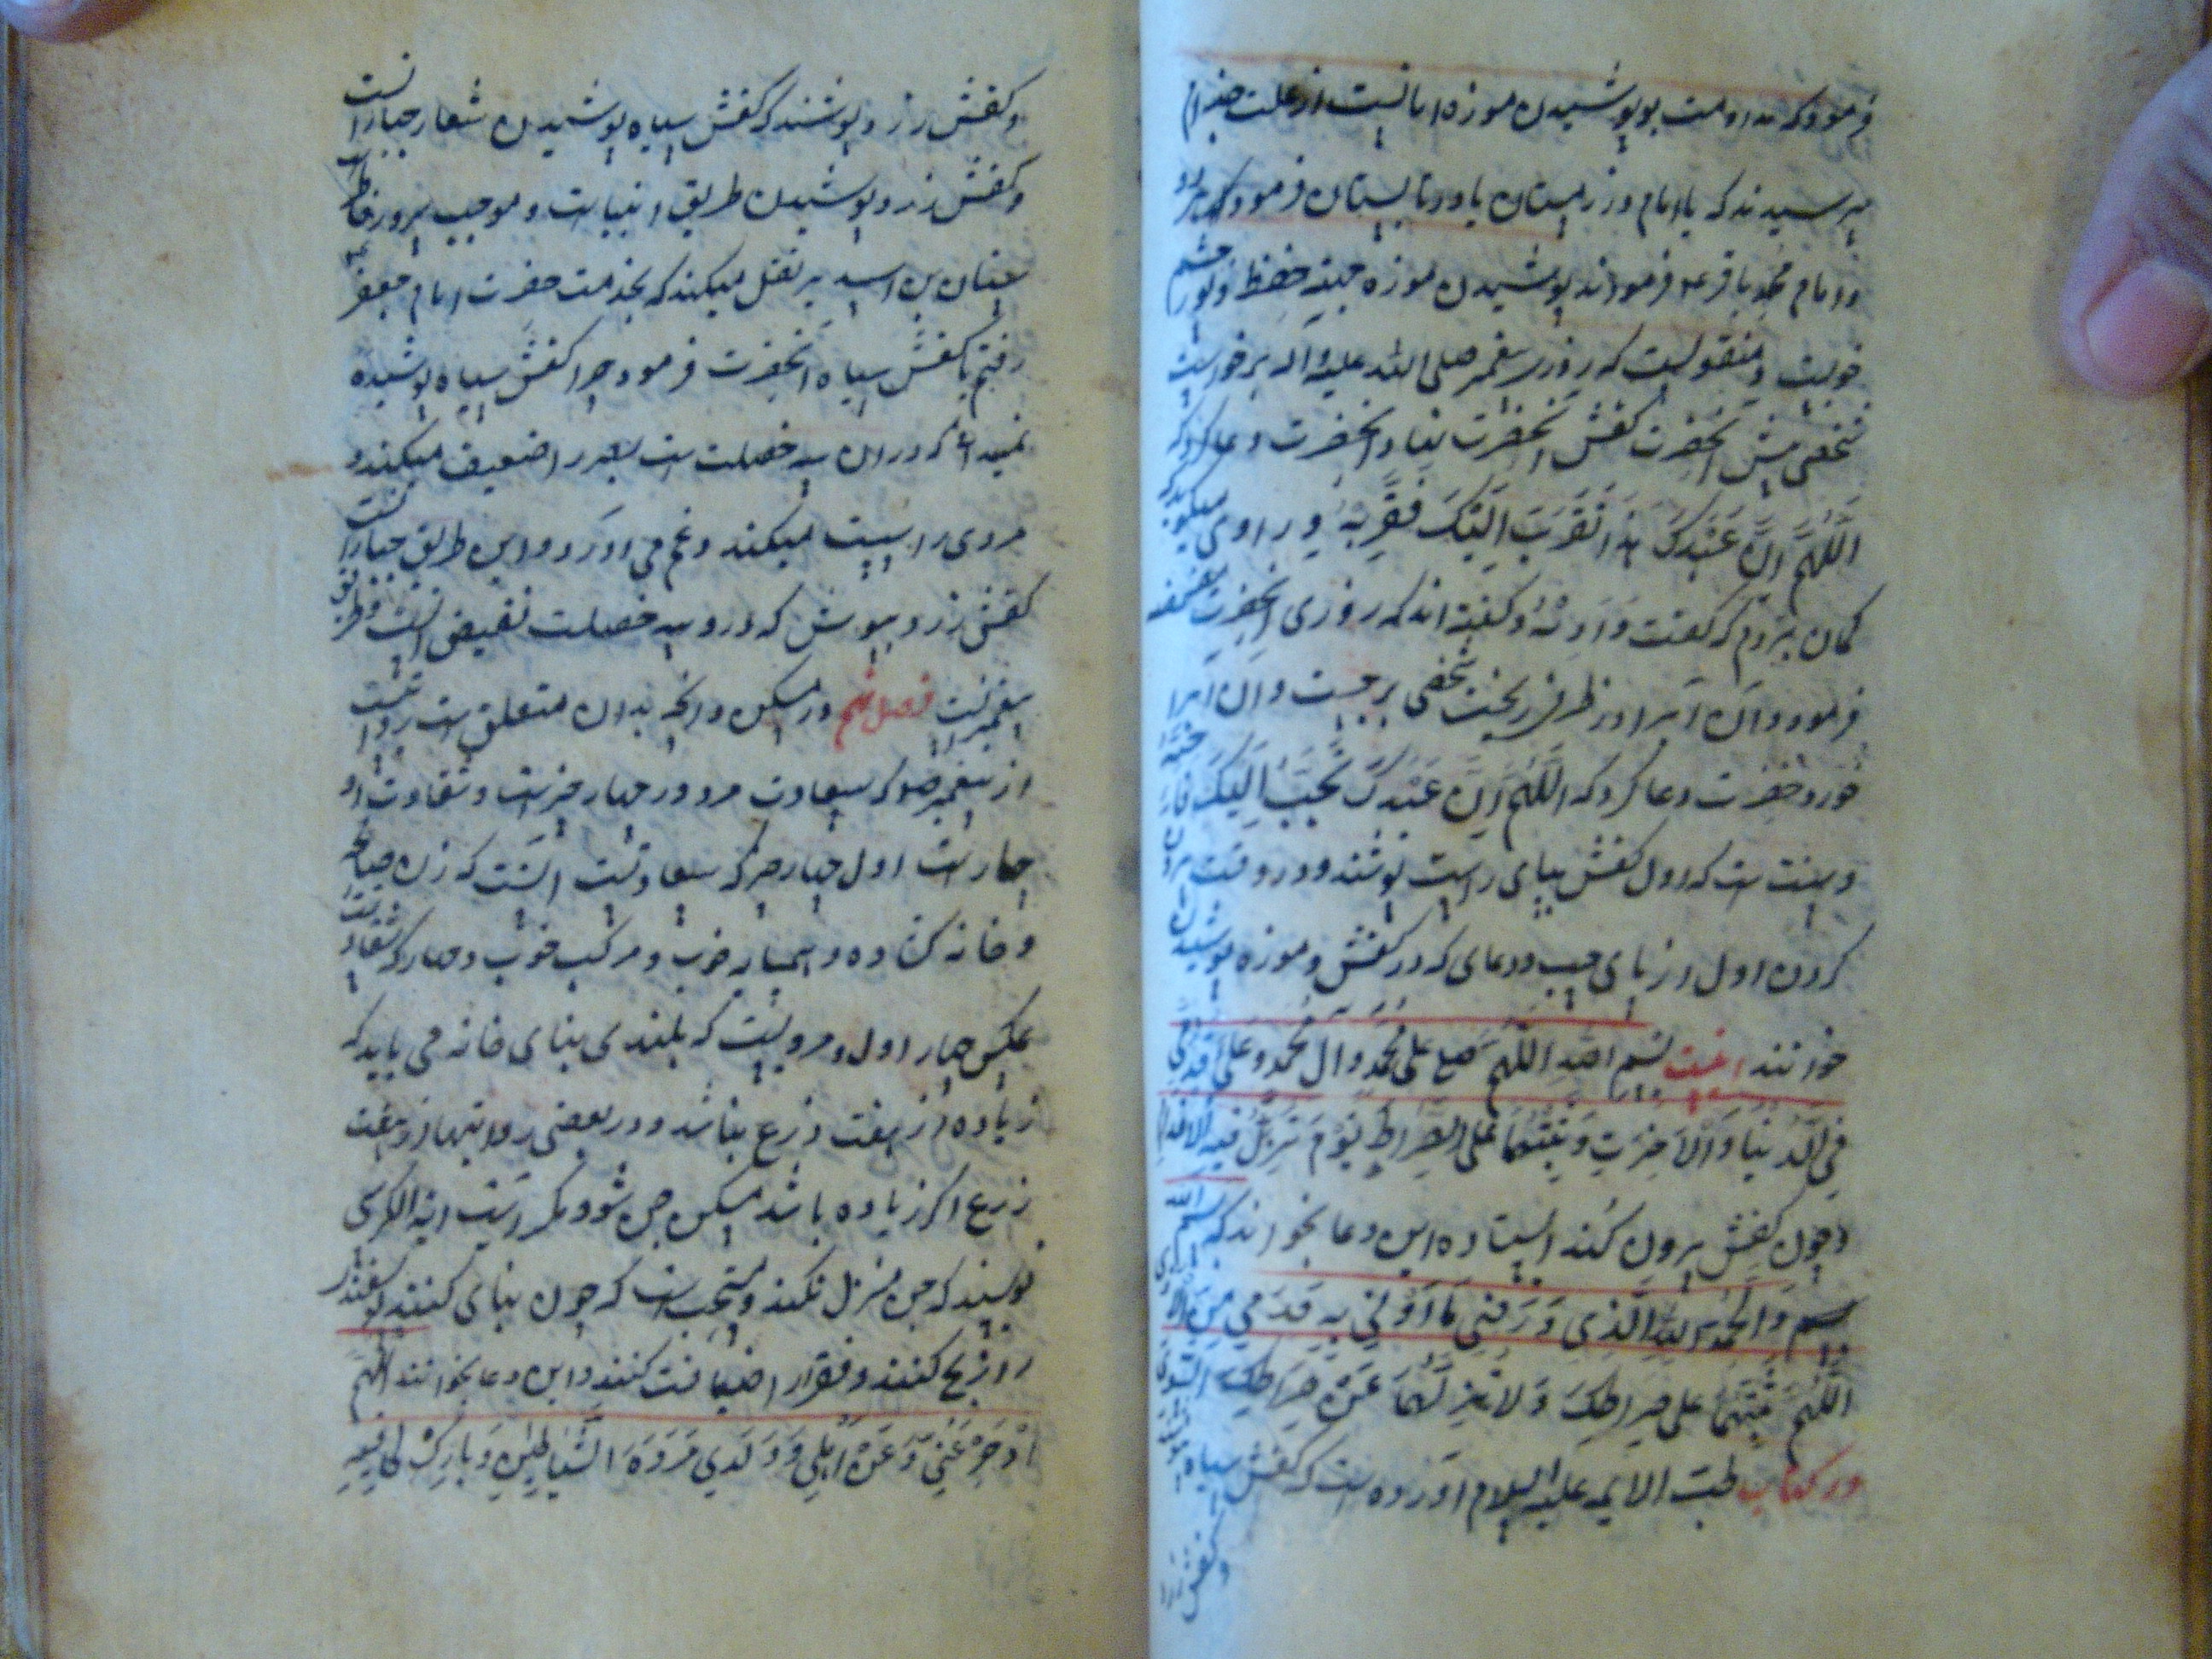 فرمود که مداومت بپوشیدن موزه امانیست از علت جذام
پرسیدند که یا امام در زمستان یا در تابستان فرمود که هر دو
و امام محمد باقر ع فرموده‌اند پوشیدن موزه جهته حفظ و نور چشم
خوبست و منقولست که روزی پیغمبر صلی الله علیه و اله برخواست
شخصی پیش آنحضرت کفش آنحضرت نهاد آنحضرت دعا کرد که
اَللّٰهُمَّ اِنَّ عَبْدَکَ هٰذا تَقَرَّبَ اِلَیْکَ فَقَرِّبْهُ و راوی میکوید که
کمان بردم که کفت وَ اَدْنِهُ و کفته اند که روزی آنحضرت
فرمود و آن آبرا در ظرفی ریخت شخصی برجست و آن آبرا
خورد حضرت دعا کرد که اَللّٰهُمَّ اِنَّ عَبْدَکَ تَحَبَّبَ اِلَیْکَ
و سنت است که اول کفش بپای راست پوشند و در وقت بیرون
کردن اول از پای چپ و دعای که در کفش و موزه پوشیدن
خوانند اینست بسم الله اللّهُمَّ صل علی محمد و ال محمد و علی قدمی
فِی الدُّنْیا وَ الْاٰخِرَتِ وَ ثَبِّتْهُما عَلَی الصِّراطِ یَوْمَ تَزِلُّ فیهِ الاقدام
و چون کفش بیرون کند ایستاده این دعا بخواند که بسم الله
وَ الْحَمْدُ لِلّٰهِ الَّذِی رَزَقَنِی مٰا اَوْقی بِهِ قَدَمی مِنَ الْاَذی
اَللّٰهُمَّ ثَبِّتْهُما عَلی صِراطِکَ وَ لا تُزِلَّهُما عَنْ صِراطِکَ السَّوِیِّ
در کتاب طب الایمه علیه السلام آورده است که کفش سیاه
و کفش زرد
و کفش زرد پوشند که کفش سیاه پوشیدن شعار جبارانست
و کفش زرد پوشیدن طریق انبیاست و موجب سرور خاطر
نقل میکند که بخدمت حضرت امام جعفر ع
رفتم با کفش سیاه آنحضرت فرمود چرا کفش سیاه پوشیده
که در آن سه خصلت است بصر را ضعیف میکند و
مردی را سست میکند و غم می آورد و این طریق جبارانست
کفش زرد بپوش که در و سه خصلت نقیض آنست و طریق
پیغمبرانست فصل نهم در مسکن و انچه بدان متعلق است روایتست
از پیغمبر ص که سعادت مرد در چهار چیز است و شقاوت او
چهار است اول چهار چیز که سعادتست آنست که زن صالحه
و خانه کشاده و همسایه خوب و مرکب خوب و چهار که شقاوتست
عکس چهار اول و مرویست که بلندی بنای خانه می باید که
زیاده از هفت ذرع نباشد و در بعضی روایتها از هفت
زرع اکر زیاده باشد مسکن جن شود مکر آیت ایة الکرسی
نویسند که جن منزل نکند و مستحب است که چون بنای کنند کوسفند
را ذبح کنند و فقرا را ضیافت کنند و این دعا بخوانند اللّهمّ
اِدْحَرْ عَنّی وَ عَنْ اَهْلی وَ وَلَدی مَرَدَةَ الشَّیاطینِ وَ بارِکْ لی فیهِ